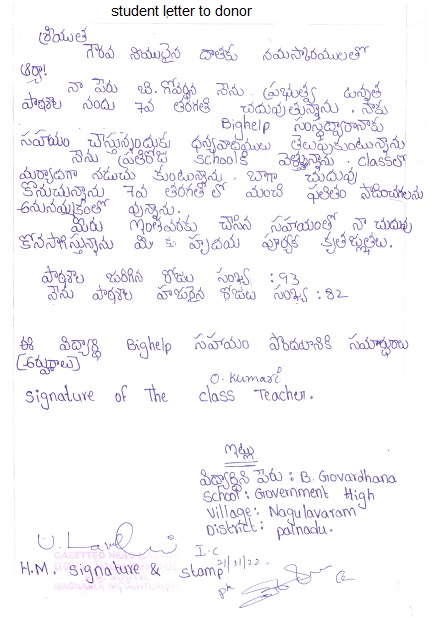 student letter to donor
శ్రీయుత
గౌరవ నీయులైన దాతకు నమస్కారములతో
ఆర్యా!
నా పేరు బి. గోవర్ధన నేను ప్రభుత్వ ఉన్నత
పాఠశాల నందు 7వ తరగతి చదువుతున్నాను. నాకు
Bighelp సంస్థద్వారానాకు
సహయం చేస్తున్నందుకు ధన్యవాదములు తెలుపుకుంటున్నాను
నేను ప్రతిరోజు schoolకి వెళ్తున్నాను. classలో
మర్యాదగా నడుచు కుంటున్నాను. బాగా చదువు
కొనుచున్నాను 7వ తరగతి లో మంచి ఫలితం సాదించగలను
అనునమ్మకంతో వున్నాను.
మీరు ఇంతవరకు చేసిన సహాయంతో నా చదువు
కోనసాగిస్తున్నాను మీ కు హృదయ పూర్వక కృతజ్ఞతలు.
పాఠశాల జరిగిన రోజులు సంఖ్య : 93
నేను పాఠశాల హాజరైన రోజులు సంఖ్య : 82
ఈ విద్యార్థి Bighelp సహాయం పొందటానికి సమార్థురాలు
(అర్హురాలు)
O. Kumari
signature of The class Teacher.
ఇట్లు
విద్యార్థిని పేరు : B. Giovardhana
School : Government High
Village : Nagulavaram
District : palnadu.
I.C
21/11/22
H.M. signature & stamp